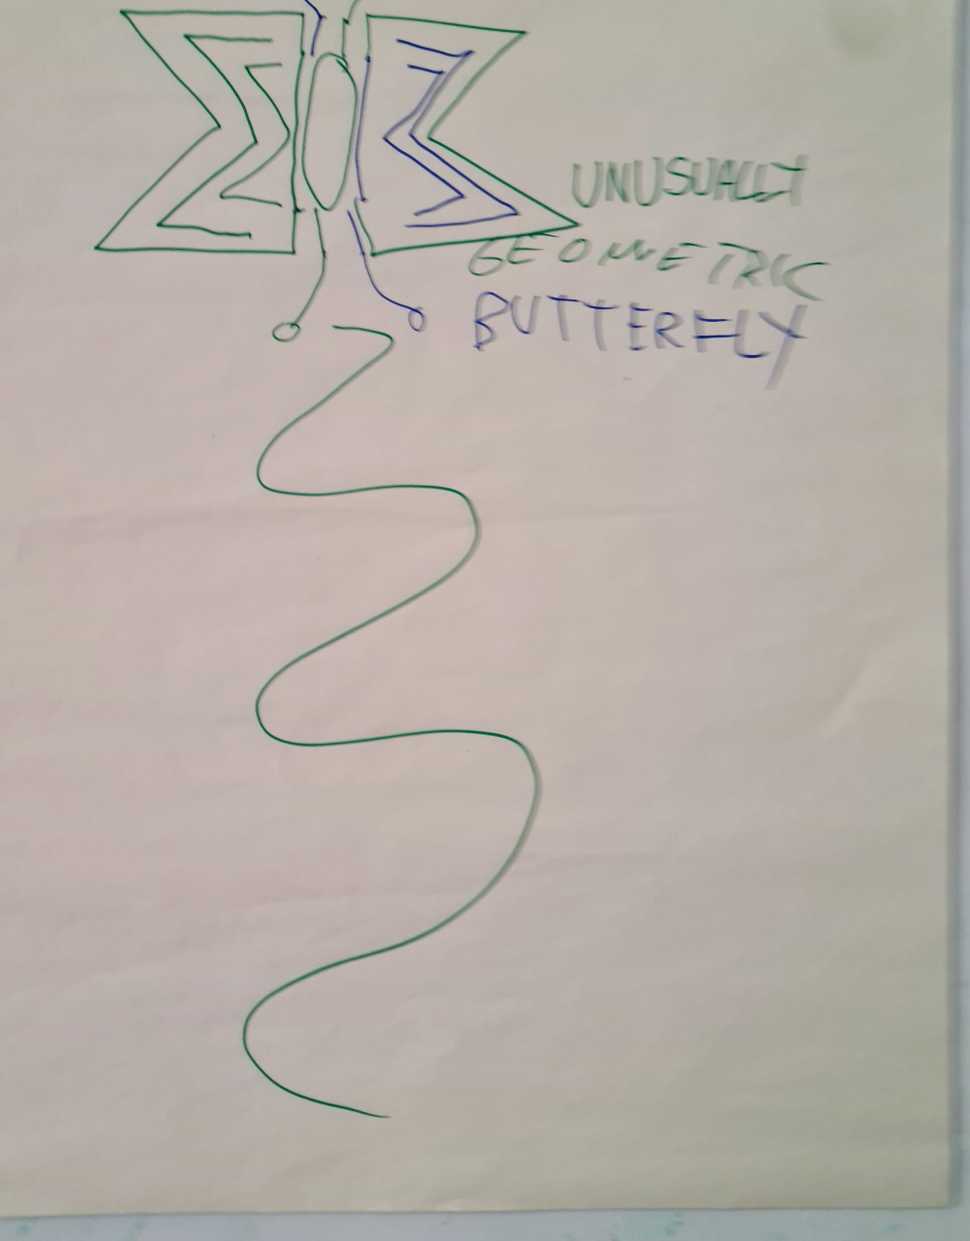 UNUSUALLY
GEOMETRIC
BUTTERFLY